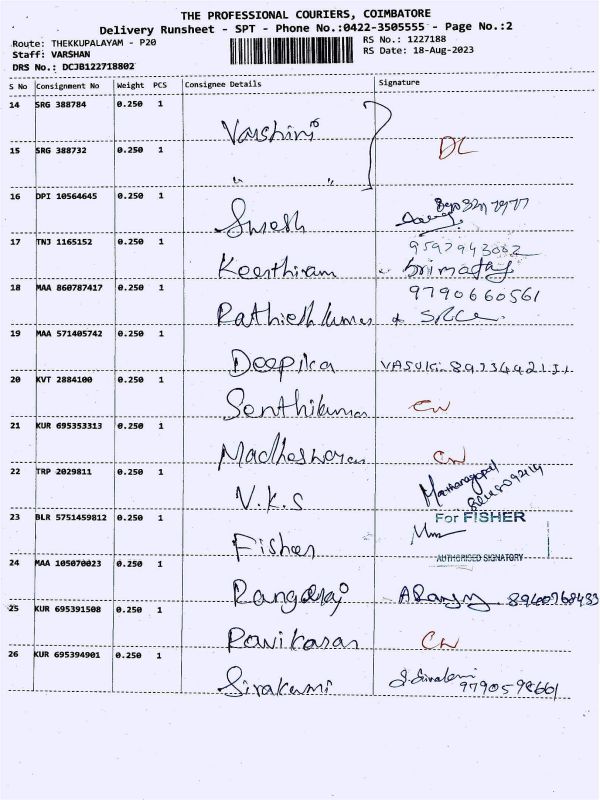 THE PROFESSIONAL COURIERS, COIMBATORE
Delivery Runsheet - SPT - Phone No.:0422-3505555 - Page No.:2
Route: THEKKUPALAYAM - P20
RS No.: 1227188
Staff: VARSHAN
RS Date: 18-Aug-2023
DRS No.: DCJB122718802
S No Consignment No Weight PCS Consignee Details Signature
14 SRG 388784 0.250 1 Varshini
15 SRG 388732 0.250 1 " " DL
16 DPI 10564645 0.250 1 Suresh
17 TNJ 1165152 0.250 1 Keerthiram
18 MAA 860787417 0.250 1 Rathishkumar 9790660561
19 MAA 571405742 0.250 1 Deepika VASUKI
20 KVT 2884100 0.250 1 Senthilkumar CW
21 KUR 695353313 0.250 1 Madheswaran CW
22 TRP 2029811 0.250 1 V.K.S
23 BLR 5751459812 0.250 1 Fisher For FISHER
AUTHORISED SIGNATORY
24 MAA 105070023 0.250 1 Rangaraj
25 KUR 695391508 0.250 1 Ravikaran CW
26 KUR 695394901 0.250 1 Sivakami